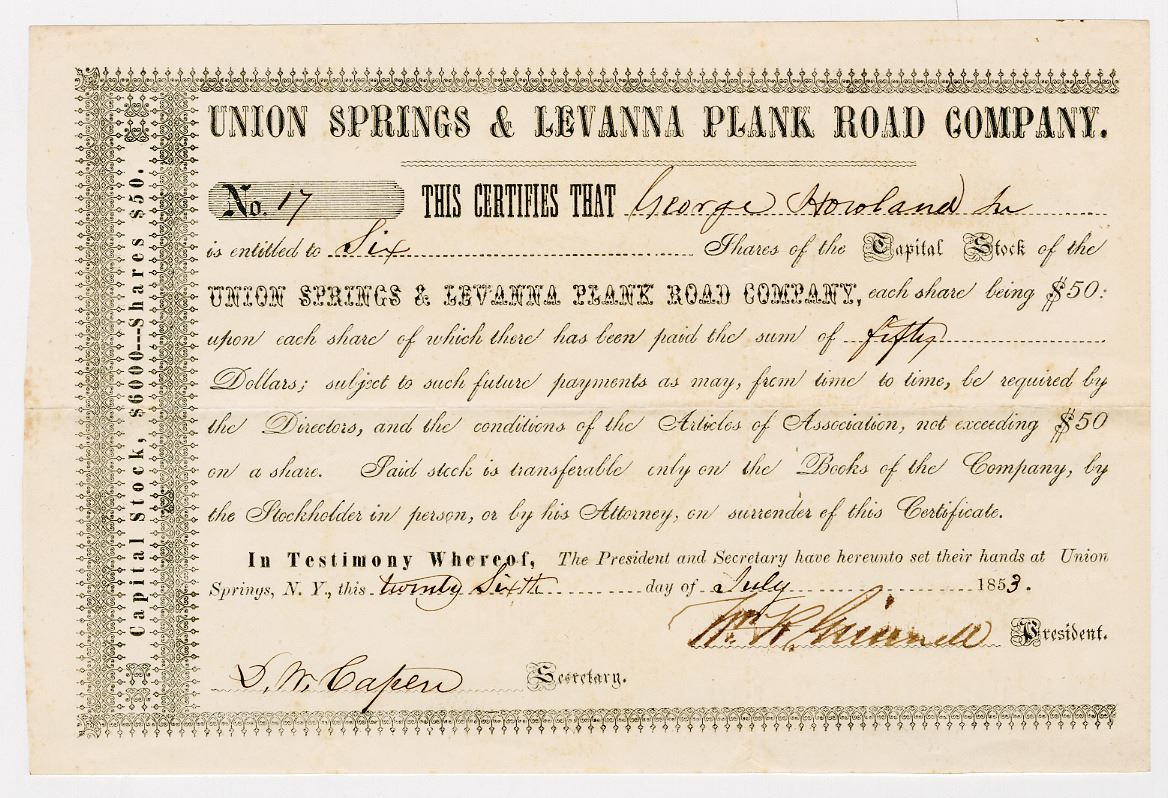 UNION SPRINGS & LEVANNA PLANK ROAD COMPANY.
No. 17 THIS CERTIFIES THAT George Howland Jr
is entitled to Six Shares of the Capital Stock of the
UNION SPRINGS & LEVANNA PLANK ROAD COMPANY, each share being $50:
upon each share of which there has been paid the sum of fifty
Dollars; subject to such future payments as may, from time to time, be required by
the Directors, and the conditions of the Articles of Association, not exceeding $50
on a share. Paid stock is transferable only on the Books of the Company, by
the Stockholder in person, or by his Attorney, on surrender of this Certificate.
In Testimony Whereof, The President and Secretary have hereunto set their hands at Union
Springs, N. Y., this twenty Sixth day of July 1853.
Wm R. Grinnell President.
D. W. Capen Secretary.
Capital Stock, $6000---Shares $50.